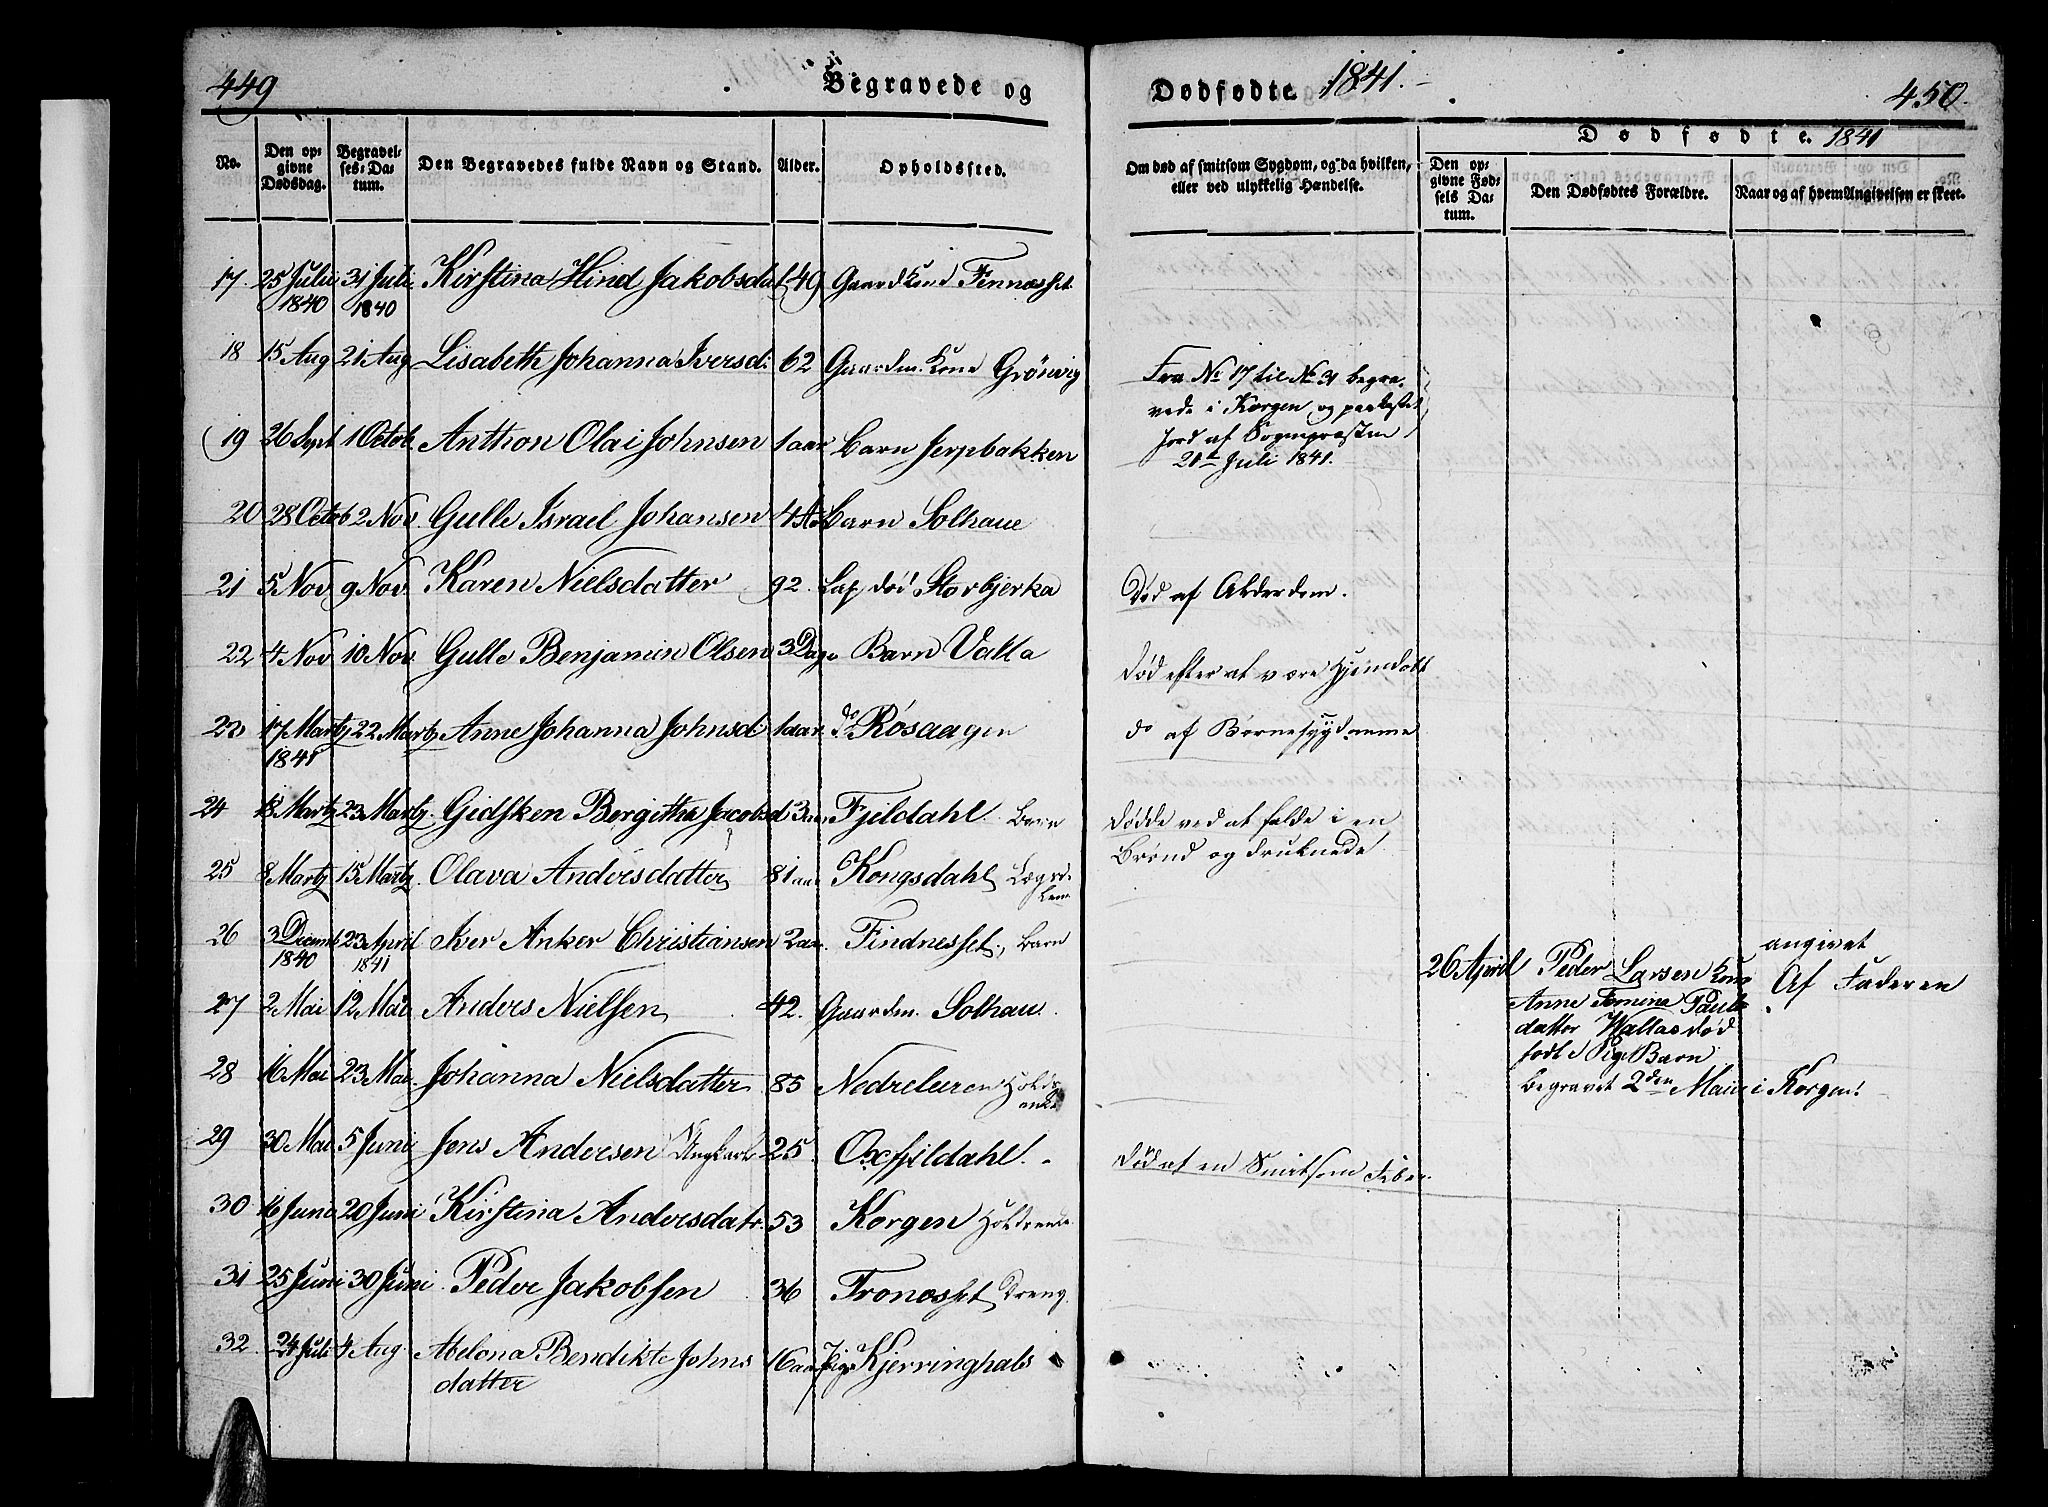 449
Begravede og
Dødfødte 1841.
450.
Dødfødte. 1841
No.
Den opgivne Dødsdag.
Begravelses-Datum.
Den Begravedes fulde Navn og Stand.
Alder.
Opholdssted.
Om død af smitsom Sygdom, og da hvilken, eller ved ulykkelig Hændelse.
Den opgivne Fødsels Datum.
Den Dødfødtes Forældre.
Naar og af hvem Angivelsen er skeet.
17. 25 Julii 1840 31 Juli 1840 Kirstina Hind Jakobsdat 49 Gaardkone Finnæsset
18 15 Aug 21 Aug Lisabeth Johanna Iversd: 62 Gaardm. Kone Grönvig
Fra No 17 til No 31 begra-
vede i Korgen og paakastet
Jord af Sognepræsten
21de Juli 1841.
19 26 Sept 1 Octob. Anthon Olai Johnsen 1 aar Barn Jerpbakken
20 28 Octob 2 Nov Gulle Israel Johansen 4 Barn Solhaue
21 5 Nov 9 Nov. Karen Nielsdatter 92. Lap død Storbjerka Død af Alderdom.
22 4 Nov 10 Nov. Gulle Benjamin Olsen 3 Dage Barn Valla død efter at være Hjemdøbt
23 17 Martz 1841 22 Martz Anne Johanna Johnsd: 1 aar. do Røsaagen do af Børnesygdomme
24 18 Martz 23 Martz. Gidsken Bergitha Jacobsd 3 aar Fjeldahl. Barn dødde ved at falde i en
Brønd og druknede
25 8 Martz 15 Martz. Olava Andersdatter 81 aar Kongsdahl Lægds-
Lem
26 3 Decemb 1840 23 April 1841 Iver Anker Christiansen 2 aar. Findnesset. Barn
27 2 Mai 12 Mai. Anders Nielsen 42. Gaardm. Solhau.
26 April Peder Larsen Kone
Anne Pauls
datter Vallas død
født Pige Barn
begravet 2den Maii i Korgen.
angivet
Af Faderen
28 16 Mai 23 Mai. Johanna Nielsdatter 85 Nedreleiren
29 30 Mai 5 Juni Jens Andersen Ungkarl 25 Oxfjeldahl. død af en Smitsom Feber
30 16 Juni 20 Juni Kirstina Andersdatr. 53 Korgen
31 25 Juni 30 Juni Peder Jakobsen 36 Fronæsset Dreng.
32. 24 Juli 4 Aug. Abelona Bendikte Johns
datter 16 aar Pige Kjerringhals